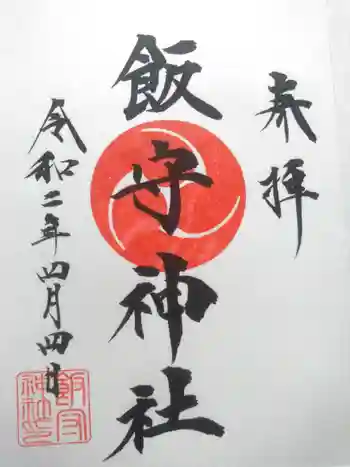 奉拝
飯守神社
令和二年四月四日
飯守
神社印